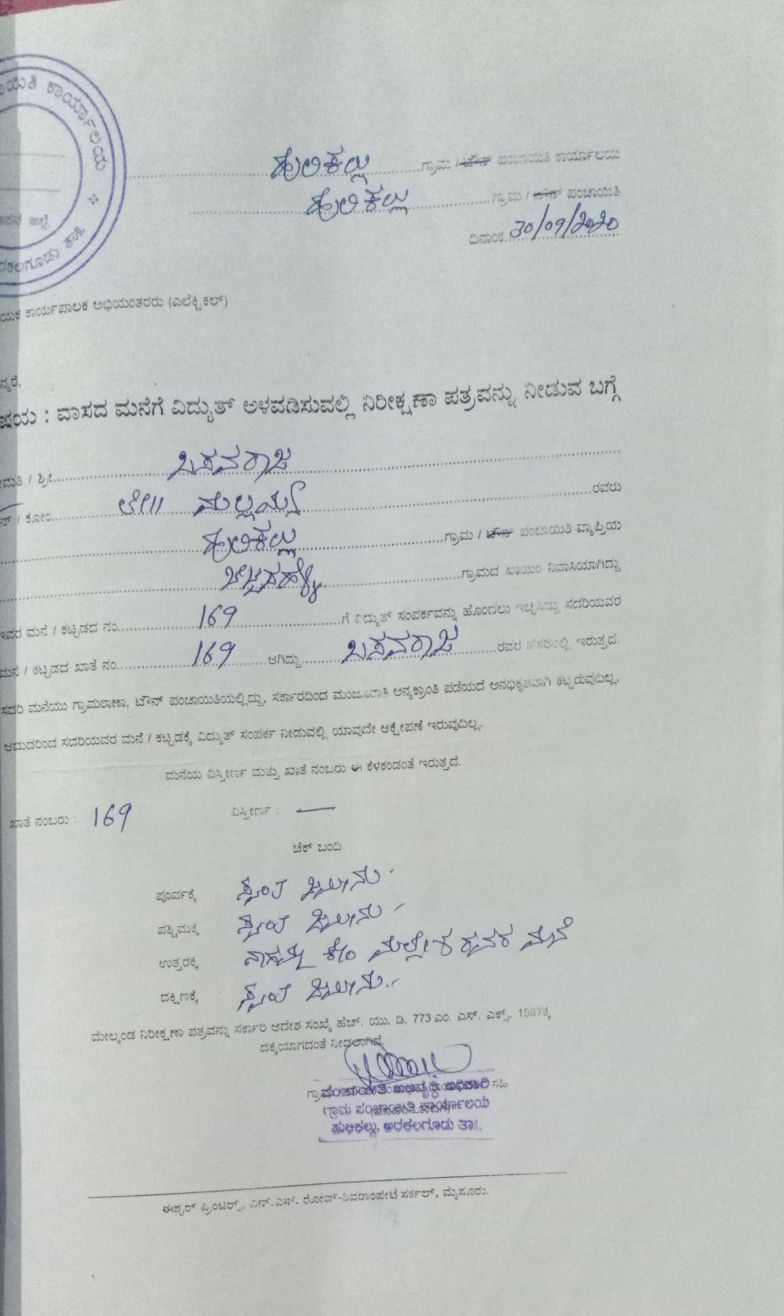 ಯಿತಿ ಕಾರ್ಯಾಲಯ
ಜಿಲ್ಲೆ
ಅರಕಲಗೂಡು ತಾ||
ಹುಲಿಕಲ್ಲು ಗ್ರಾಮ / ಟೌನ್ ಪಂಚಾಯಿತಿ ಕಾರ್ಯಾಲಯ
ಹುಲಿಕಲ್ಲು ಗ್ರಾಮ / ಟೌನ್ ಪಂಚಾಯಿತಿ
ದಿನಾಂಕ 30/09/2020
ಯಕ ಕಾರ್ಯಪಾಲಕ ಅಭಿಯಂತರರು (ಎಲೆಕ್ಟ್ರಿಕಲ್)
ನ್ಯರೆ,
ಷಯ : ವಾಸದ ಮನೆಗೆ ವಿದ್ಯುತ್ ಅಳವಡಿಸುವಲ್ಲಿ ನಿರೀಕ್ಷಣಾ ಪತ್ರವನ್ನು ನೀಡುವ ಬಗ್ಗೆ
ಮತಿ / ಶ್ರೀ ಬಸವರಾಜ
ನ್ / ಕೋಂ ಲೇ|| ಮಲ್ಲಯ್ಯ ರವರು
ಹುಲಿಕಲ್ಲು ಗ್ರಾಮ / ಟೌನ್ ಪಂಚಾಯಿತಿ ವ್ಯಾಪ್ತಿಯ
ಗ್ರಾಮದ ಖಾಯಂ ನಿವಾಸಿಯಾಗಿದ್ದು
ಇವರ ಮನೆ / ಕಟ್ಟಡದ ನಂ. 169 ಗೆ ವಿದ್ಯುತ್ ಸಂಪರ್ಕವನ್ನು ಹೊಂದಲು ಇಚ್ಛಿಸಿದ್ದು ಸದರಿಯವರ
ಮನೆ / ಕಟ್ಟಡದ ಖಾತೆ ನಂ. 169 ಆಗಿದ್ದು ಬಸವರಾಜ ರವರ ಹೆಸರಿನಲ್ಲಿ ಇರುತ್ತದೆ.
ಸದರಿ ಮನೆಯು ಗ್ರಾಮಠಾಣಾ, ಟೌನ್ ಪಂಚಾಯಿತಿಯಲ್ಲಿದ್ದು, ಸರ್ಕಾರದಿಂದ ಮಂಜೂರಾತಿ ಅನ್ಯಕ್ರಾಂತಿ ಪಡೆಯದೆ ಅನಧಿಕೃತವಾಗಿ ಕಟ್ಟಿರುವುದಿಲ್ಲ.
ಆದುದರಿಂದ ಸದರಿಯವರ ಮನೆ / ಕಟ್ಟಡಕ್ಕೆ ವಿದ್ಯುತ್ ಸಂಪರ್ಕ ನೀಡುವಲ್ಲಿ ಯಾವುದೇ ಆಕ್ಷೇಪಣೆ ಇರುವುದಿಲ್ಲ.
ಮನೆಯ ವಿಸ್ತೀರ್ಣ ಮತ್ತು ಖಾತೆ ನಂಬರು ಈ ಕೆಳಕಂಡಂತೆ ಇರುತ್ತದೆ.
ಖಾತೆ ನಂಬರು : 169 ವಿಸ್ತೀರ್ಣ : —
ಚೆಕ್ ಬಂದಿ
ಪೂರ್ವಕ್ಕೆ ಸ್ವಂತ ಜಮೀನು
ಪಶ್ಚಿಮಕ್ಕೆ ಸ್ವಂತ ಜಮೀನು
ಉತ್ತರಕ್ಕೆ ಕೋಂ ಮಲ್ಲೇಶ ರವರ ಮನೆ
ದಕ್ಷಿಣಕ್ಕೆ ಸ್ವಂತ ಜಮೀನು
ಮೇಲ್ಕಂಡ ನಿರೀಕ್ಷಣಾ ಪತ್ರವನ್ನು ಸರ್ಕಾರಿ ಆದೇಶ ಸಂಖ್ಯೆ ಹೆಚ್. ಯು. ಡಿ. 773 ಎಂ. ಎಸ್. ಎಕ್ಸ್. 1987ಕ್ಕೆ
ದಕ್ಕೆಯಾಗದಂತೆ ನೀಡಲಾಗಿದೆ
ಪಂಚಾಯಿತಿ ಅಭಿವೃದ್ಧಿ ಅಧಿಕಾರಿ ಸಹಿ
ಗ್ರಾಮ ಪಂಚಾಯಿತಿ ಕಾರ್ಯಾಲಯ
ಹುಲಿಕಲ್ಲು, ಅರಕಲಗೂಡು ತಾ||.
ಈಶ್ವರ್ ಪ್ರಿಂಟರ್ಸ್, ಎನ್.ಎಸ್. ರೋಡ್-ಶಿವರಾಂಪೇಟೆ ಸರ್ಕಲ್, ಮೈಸೂರು.